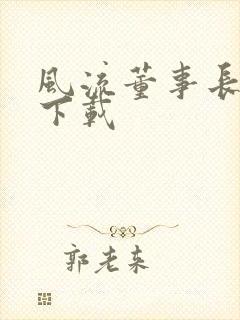 風流董事長
下載
郭老来